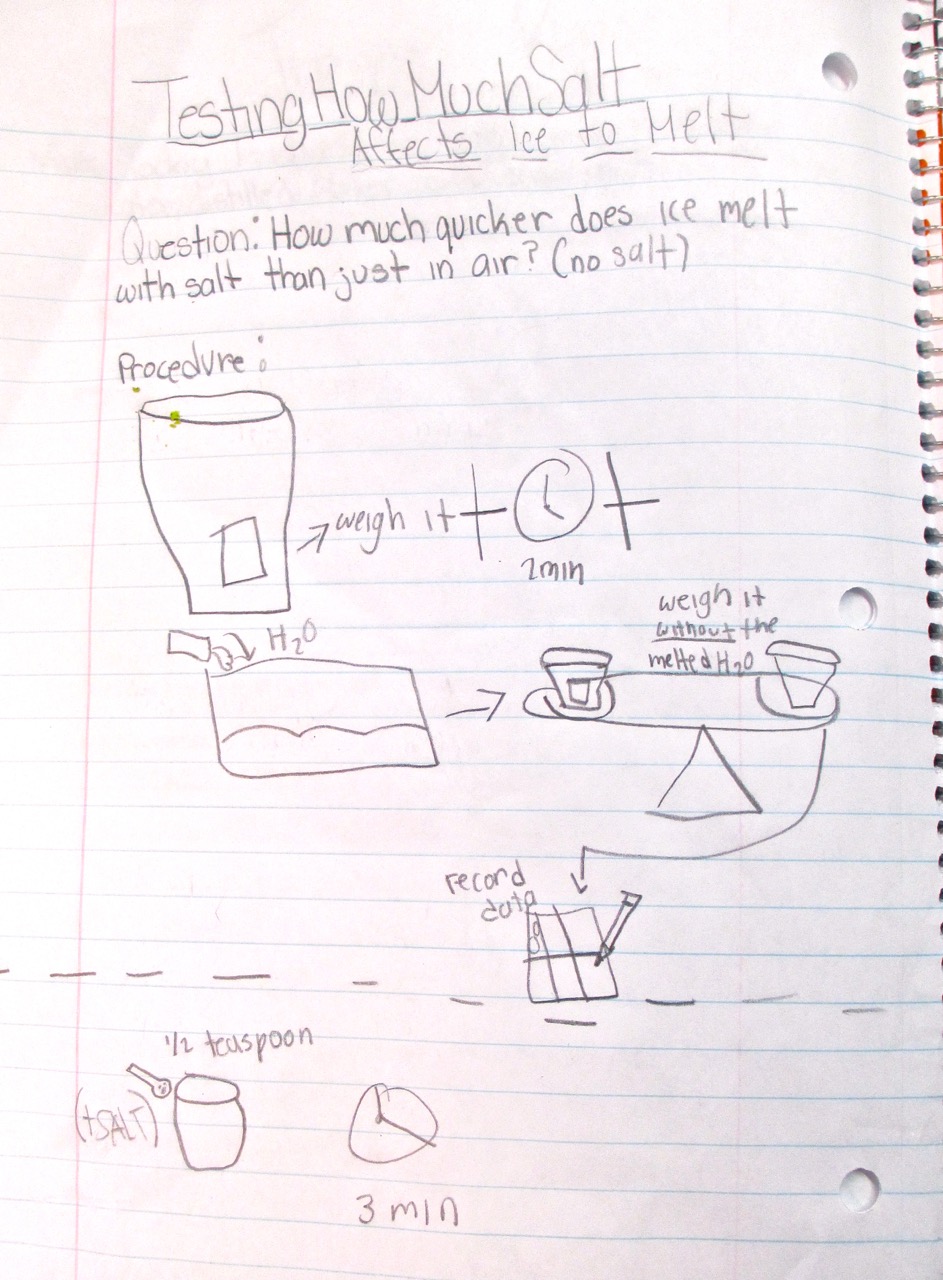 Testing How Much Salt
Affects Ice to Melt
Question: How much quicker does ice melt
with salt than just in air? (no salt)
Procedure:
weigh it
2min
H₂O
weigh it
without the
melted H₂O
record
data
1/2 teaspoon
(+SALT)
3 min